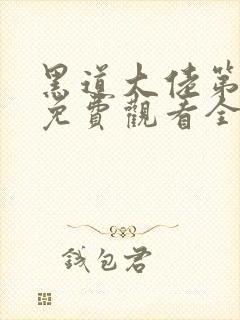 黑道大佬第
免費觀看全
錢包君